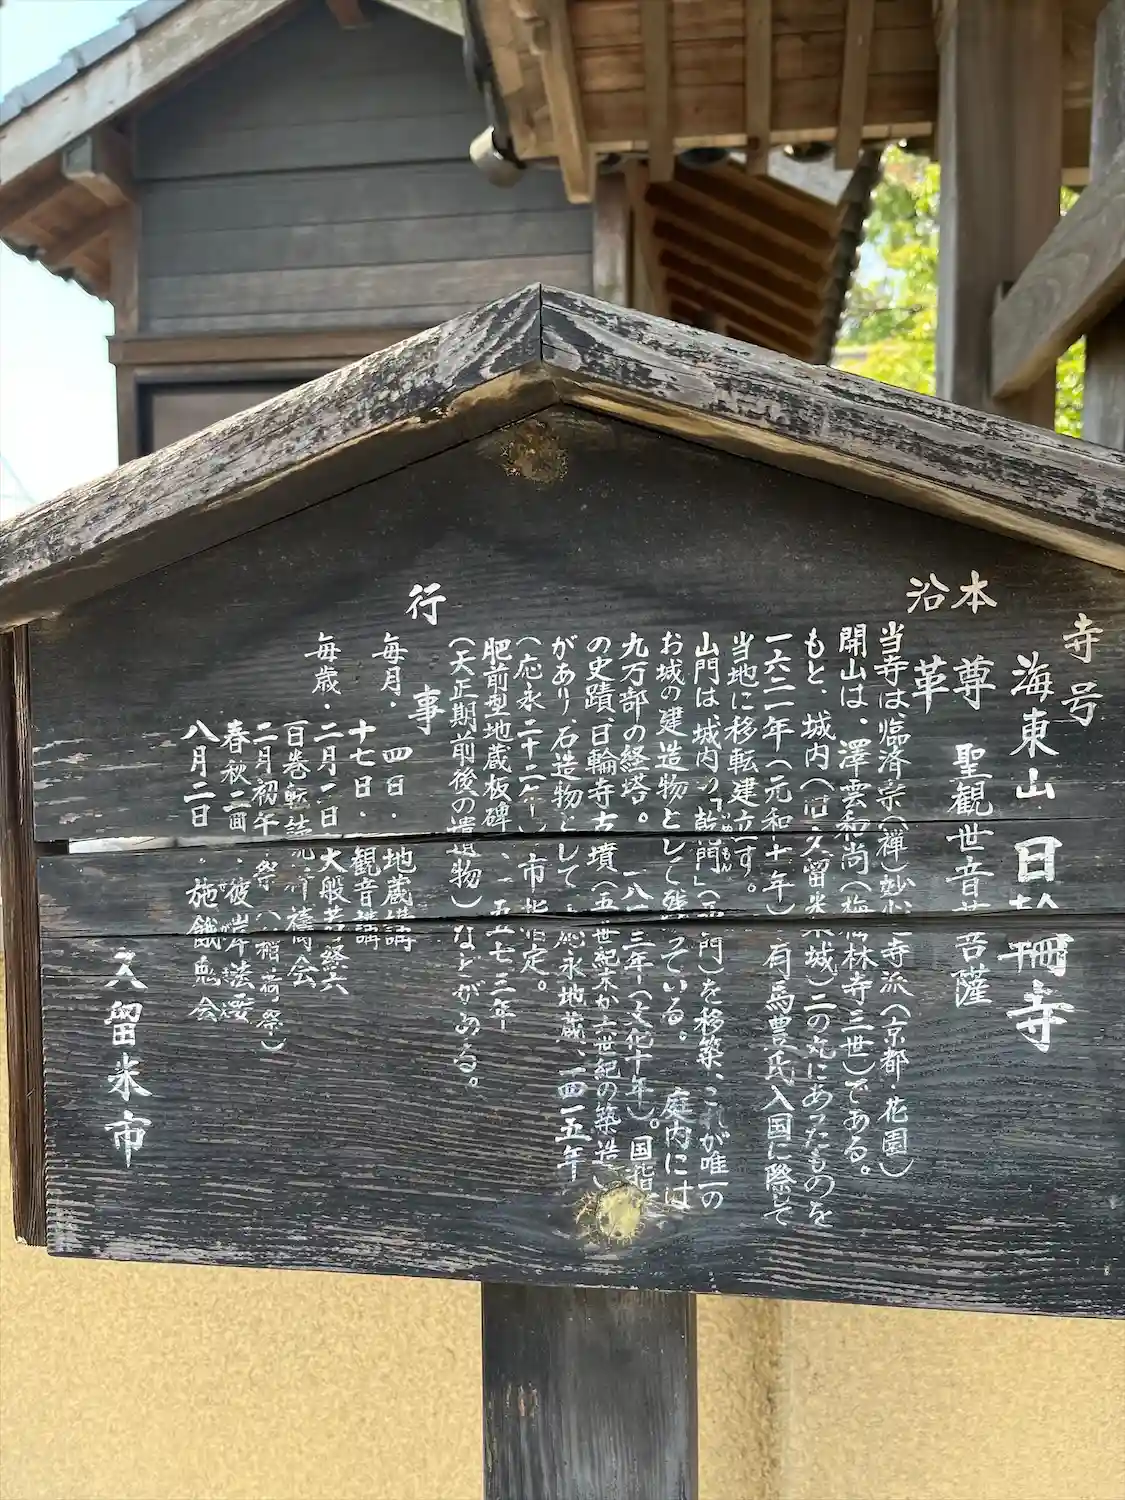 寺号 海東山 日輪寺
本尊 聖観世音菩薩
沿革
当寺は、臨済宗(禅)妙心寺派(京都・花園)
開山は、澤雲和尚(梅林寺三世)である。
もと、城内(旧久留米城)二の丸にあったものを
一六二一年(元和七年)有馬豊氏入国に際して
当地に移転建立す。
山門は、城内の「乾門」(西門)を移築、これが唯一の
お城の建造物として残っている。 庭内には
九万部の経塔。一八一三年(文化十年)。国指
の史蹟、日輪寺古墳(五世紀末か六世紀の築造)
があり、石造物として、応永地蔵、一四一五年
(応永二十二年)、市指定。
肥前型地蔵板碑、一五七三年
(天正期前後の遺物)などがある。
行事
毎月、四日・地蔵講
十七日・観音講
毎歳、二月一日 大般若経六
百巻転読祈祷会
二月初午 祭(稲荷祭)
春秋二回 彼岸法要
八月二日 施餓鬼会
久留米市